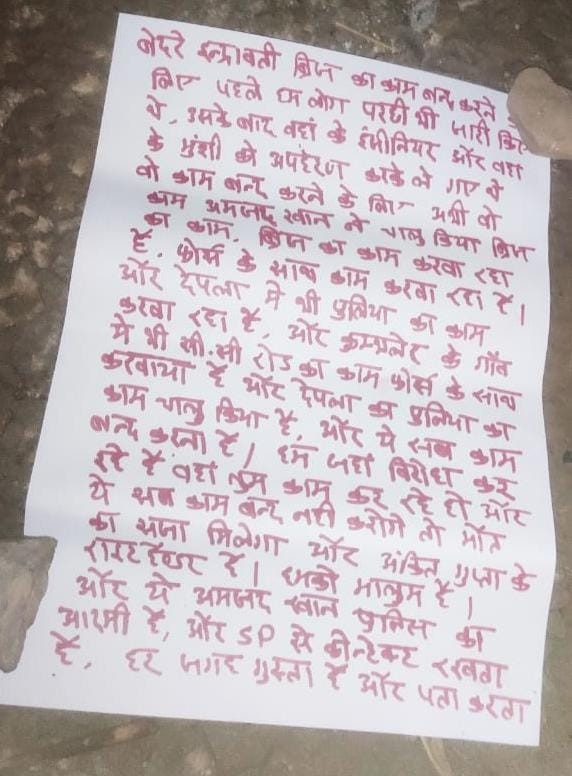 बेदरे इन्द्रावती ब्रिज का काम बन्द करने के
लिए पहले हम लोग परची भी जारी किए
थे, उसके बाद वहां के इंजीनियर और वहां
के मुंशी को अपहरण करके ले गए थे
वो काम बन्द करने के लिए अभी वो
काम अमजद खान ने चालु किया ब्रिज
का काम, ब्रिज का काम करवा रहा
है, फोर्स के साथ काम करवा रहा है।
और देपला में भी पुलिया का काम
करवा रहा है, और कम्पलेट के गाँव
में भी सी.सी रोड का काम फोर्स के साथ
करवाया है और देपला का पुलिया का
काम चालु किया है, और ये सब काम
बन्द करना है। हम जहां विरोध कर
रहे हैं वहां तुम काम कर रहे हो और
ये सब काम बन्द नहीं करोगे तो मौत
का सजा मिलेगा और अंकित गुप्ता के
राइट हैण्डर है। हमको मालुम है।
और ये अमजद खान पुलिस का
आदमी है, और SP से कोन्टेक्ट रखता
है, हर जगह घुस्ता है और पता करता